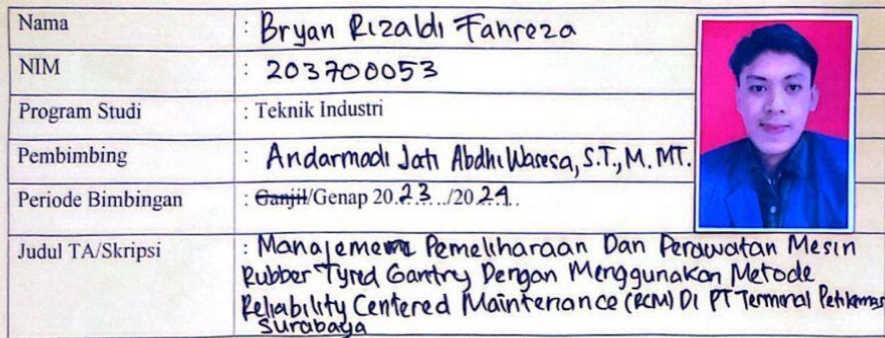 Nama : Bryan Rizaldi Fahreza
NIM : 203700053
Program Studi : Teknik Industri
Pembimbing : Andarmadi Jati Abdhi Wasesa, S.T., M. MT.
Periode Bimbingan : Ganjil/Genap 20.23../2024..
Judul TA/Skripsi : Manajemem Pemeliharaan Dan Perawatan Mesin
Rubber Tyred Gantry Dengan Menggunakan Metode
Reliability Centered Maintenance (RCM) Di PT Terminal Petikemas
Surabaya